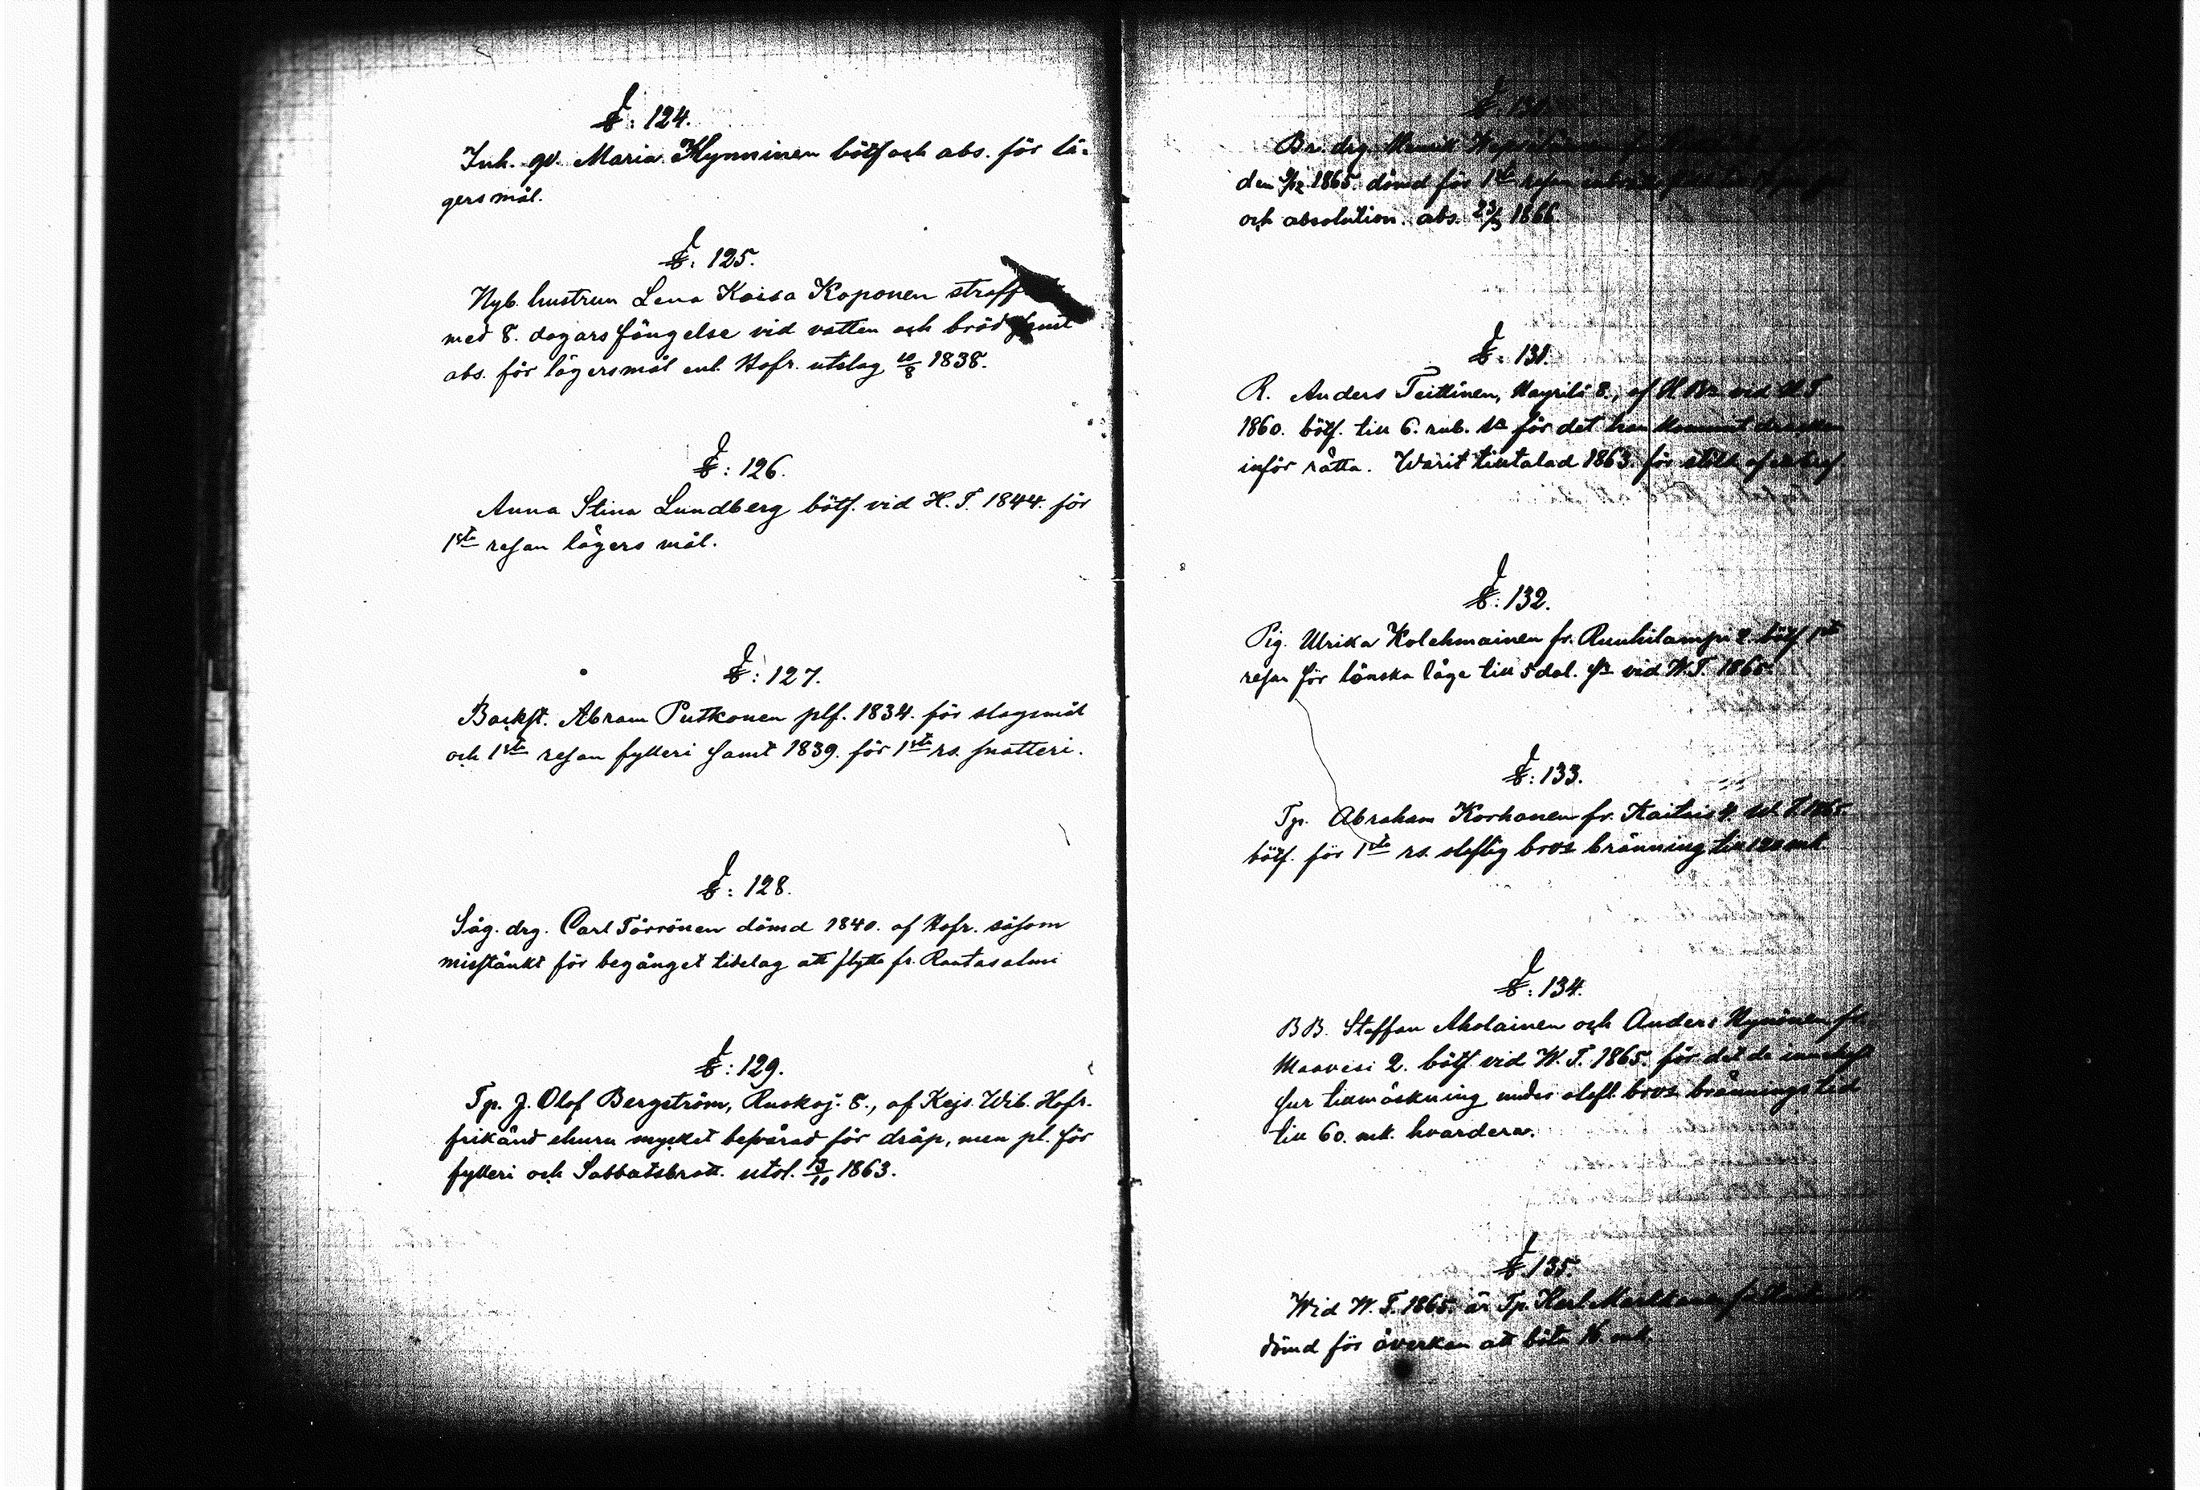 §: 124.
Inh. qv. Maria Hynninen bötf och abs. för lä-
gersmål.
§: 125.
Nyb. hustrun Lena Kaisa Koponen straff
med 8. dagars fängelse vid vatten och bröd samt
abs. för lägersmål enl. Hofr. utslag 10/8 1838.
§: 126.
Anna Stina Lundberg bötf. vid H. T. 1844. för
1sta resan lägers mål.
§: 127.
Backst. Abram Putkonen plf. 1834. för slagsmål
och 1sta resan fylleri samt 1839. för 1sta rs. snatteri.
§: 128.
Såg. drg. Carl Törrönen dömd 1840. af Hofr. såsom
misstänkt för begånget tidelag att flytta fr. Rantasalmi
§: 129.
Tp. J. Olof Bergström, Ruskoj. 8., af Kejs. Wib. Hofr.
frikänd ehuru mycket besvärad för dråp, men pl. för
fylleri och Sabbatsbrott. utsl. 13/10 1863.
§: 130.
Br. drg. Henrik
den 1865. dömd för 1sta resan
och absolution. abs. 23/5 1866.
§: 131.
R. Anders Teittinen, Häyrilä 8., af H Br vid H T
1860. bötf. till 6. rub. Sr för det han kommit drucken
inför rätta. Warit tilltalad 1863. för stöld af
§: 132.
Pig. Ulrika Kolehmainen fr. Ruuhilampi 4. bötf 1sta
resan för lönska läge till 5 dal. Sr vid W. T. 1865.
§: 133.
Tp. Abraham Korhonen fr. Kaitais 4. W. T. 1865.
bötf. för 1sta rs. oloflig brvs bränning till 120 mk.
§: 134.
BB. Staffan Aholainen och Anders Hynönen fr.
Maavesi 2. bötf. vid W. T. 1865. för det de innehaft
sur tillmäskning under olofl. brvs bränningstid
till 60. mk. hvardera.
§: 135.
Wid W. T. 1865. är Tp. Karl Markkanen fr.
dömd för åverkan att böta 16 mk.